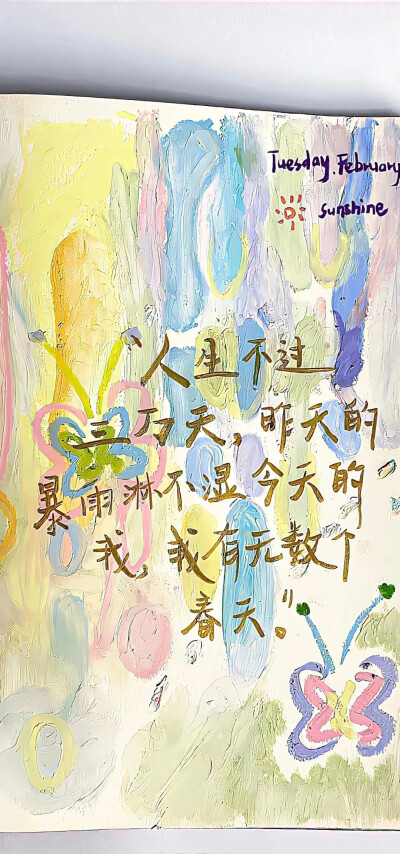 Tuesday. February
sunshine
“人生不过
三万天，昨天的
暴雨淋不湿今天的
我，我有无数个
春天。”